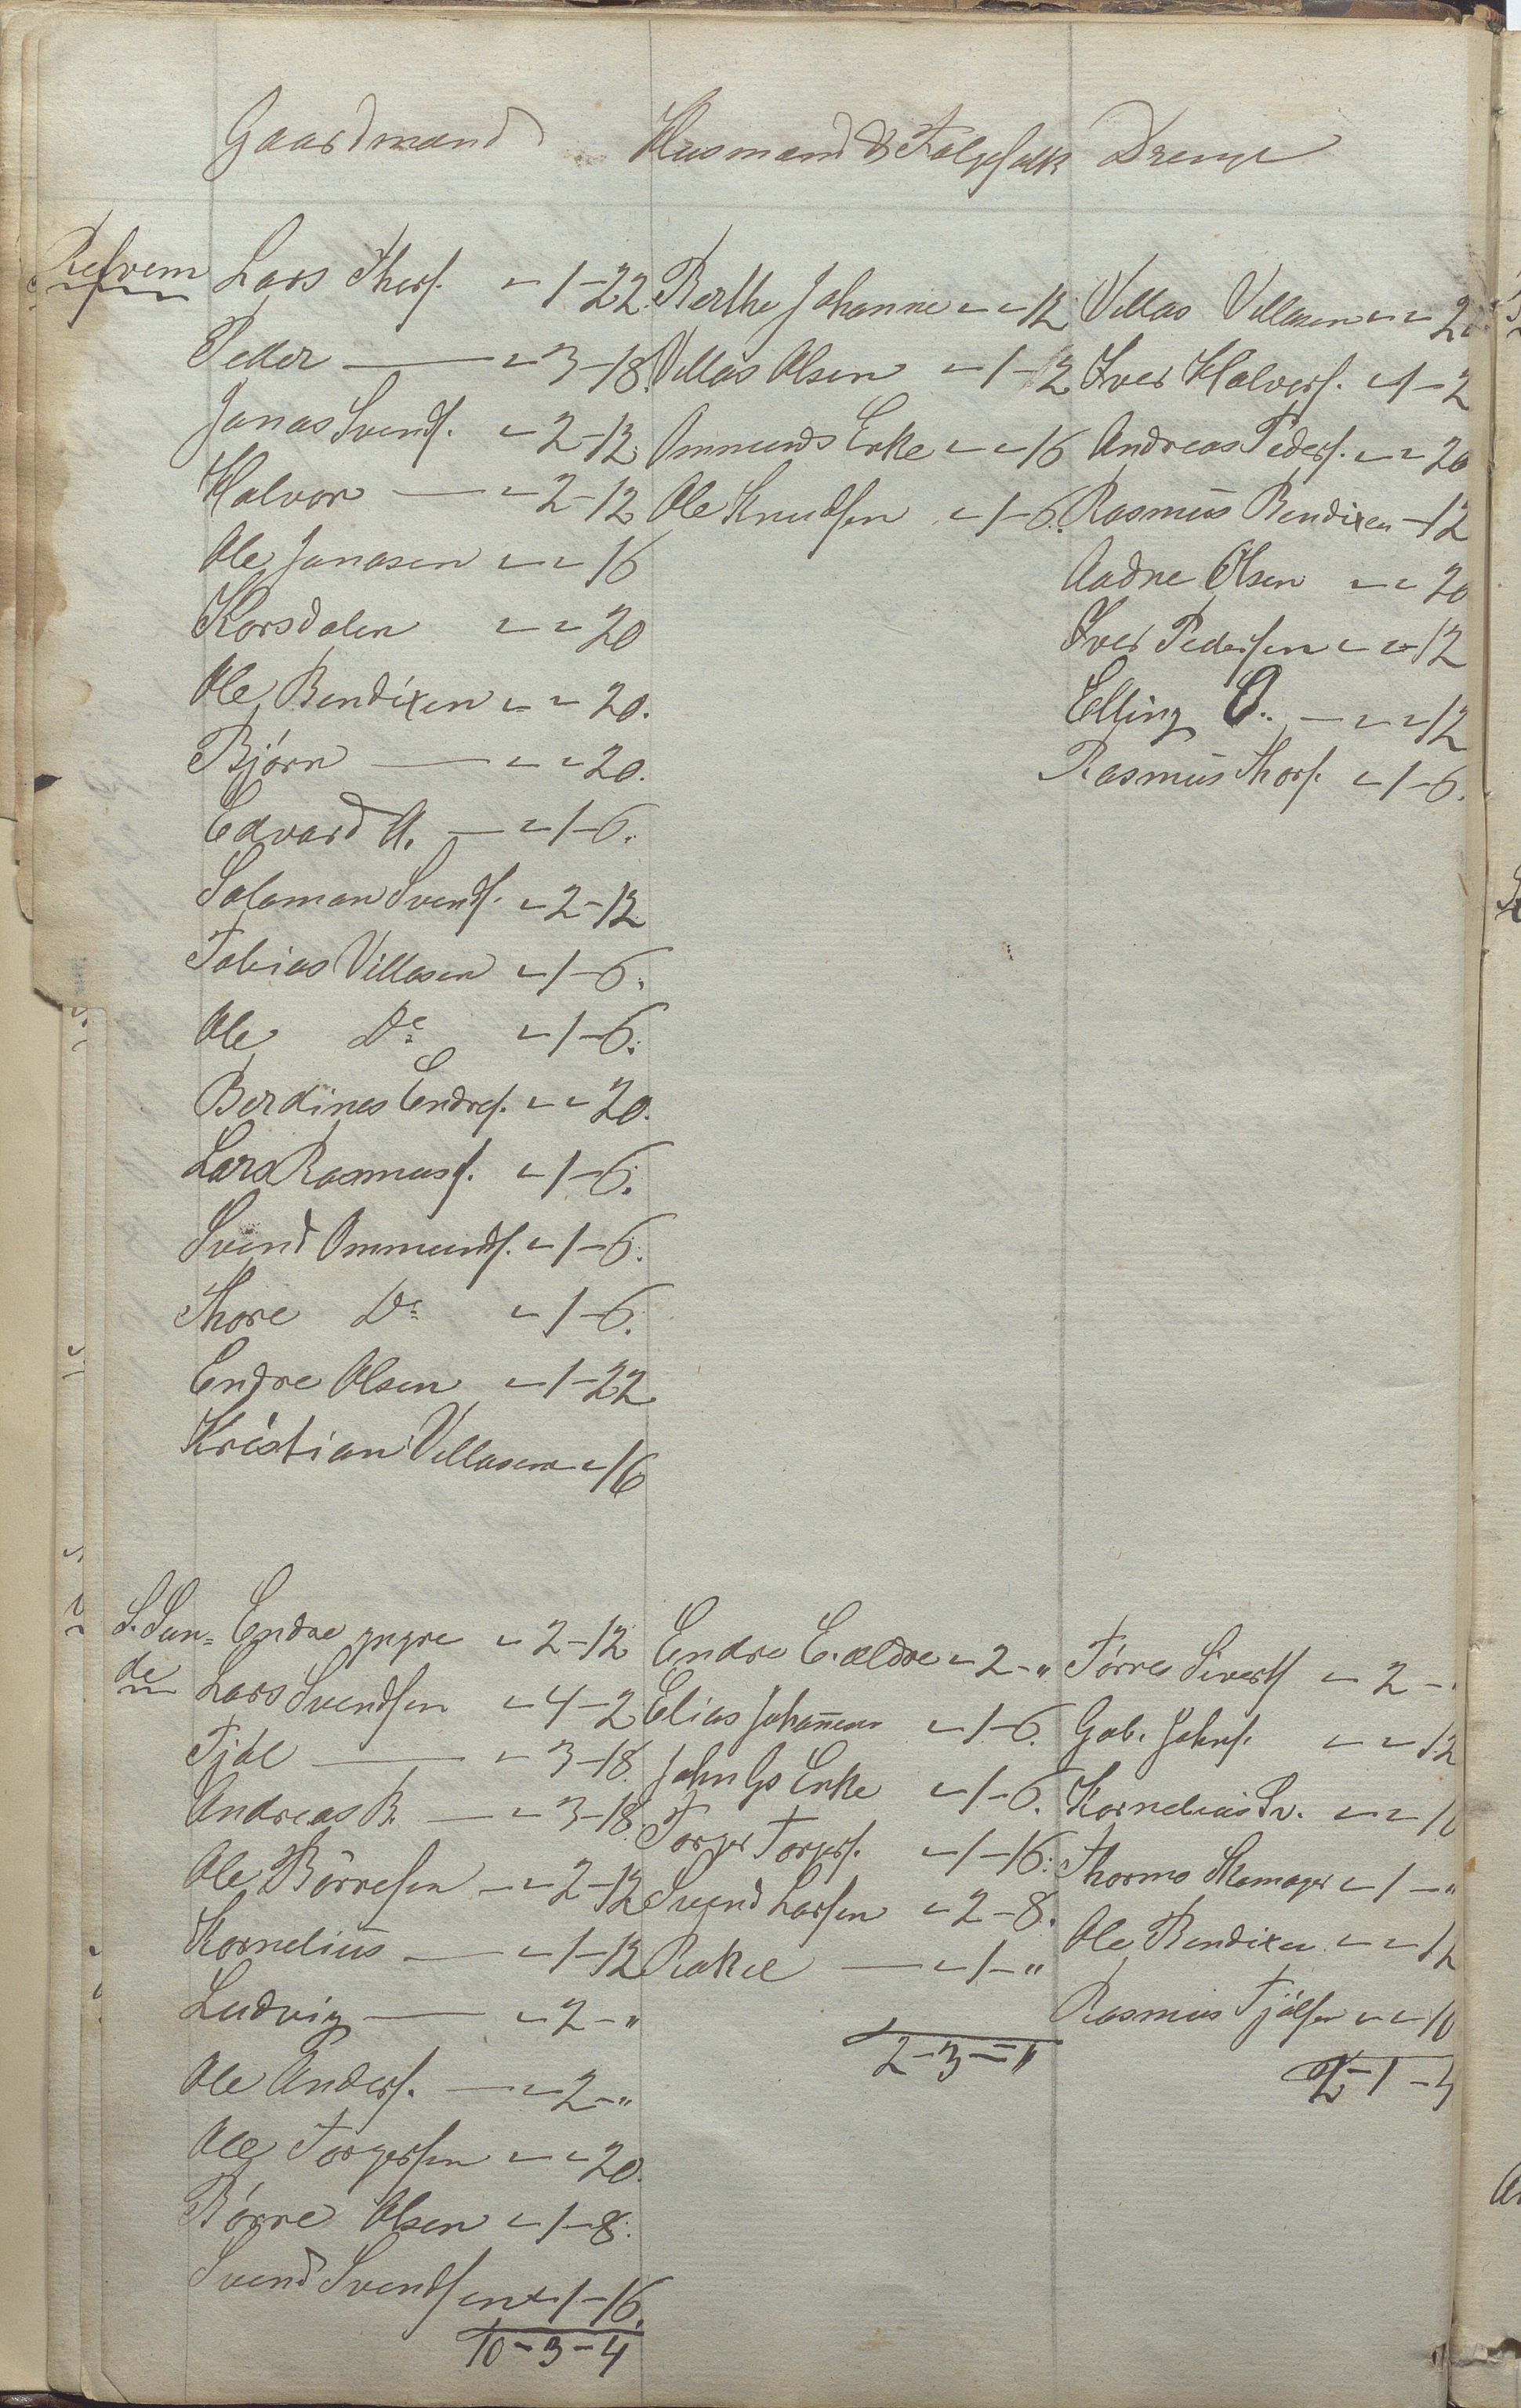 Gaardmand Husmand & Folgefolk Drenge
Refvem Lars Thors. " 1-22. Berthe Johanne " " 12 Villas Villasen " " 20
Peder — " 3-18. Villas Olsen " 1-12 Iver Halvors. " 1-2
Jonas Svends. " 2-12. Ommunds Enke " " 16 Andreas Peders. " " 20
Halvor — " 2-12 Ole Knudsen " 1-6. Rasmus Bendixen -12
Ole Jonasen " " 16 Aadne Olsen " " 20
Korsdalen " " 20 Iver Pedersen " " 12
Ole Bendixen " " 20. Elling O. — " " 12
Bjørn — " " 20. Rasmus Thors. " 1-6.
Edvard A. — " 1-6.
Salomon Svends. " 2-12.
Tobias Villasen " 1-6.
Ole Do " 1-6.
Berdines Endres. " " 20.
Lars Rasmuss. " 1-6.
Svend Ommunds. " 1-6.
Thore Do " 1-6.
Endre Olsen " 1-22
Kristian Villasen " 16
S. Sun= Endre yngre " 2-12 Endre E. ældre " 2-" Tørres Siverts " 2-
de Lars Svendsen " 4-2 Elias Johannesen " 1-6. Gab. Johns. " " 12
Tjøl — " 3-18. John Gs Enke " 1-6. Kornelius Sv. " " 16
Andreas B. — " 3-18. Torger Torgers. " 1-16. Thormo Skomager " 1-"
Ole Børresen — " 2-12 Svend Larsen " 2-8. Ole Bendixen " " 12
Kornelius — " 1-12 Rakel — " 1-" Rasmus Tjølsen " " 16
Ludvig — " 2-" 2-3-" 2-1-4
Ole Anders. — " 2-"
Ole Torgersen " " 20.
Børre Olsen " 1-8.
Svend Svendsen " 1-16.
10-3-4